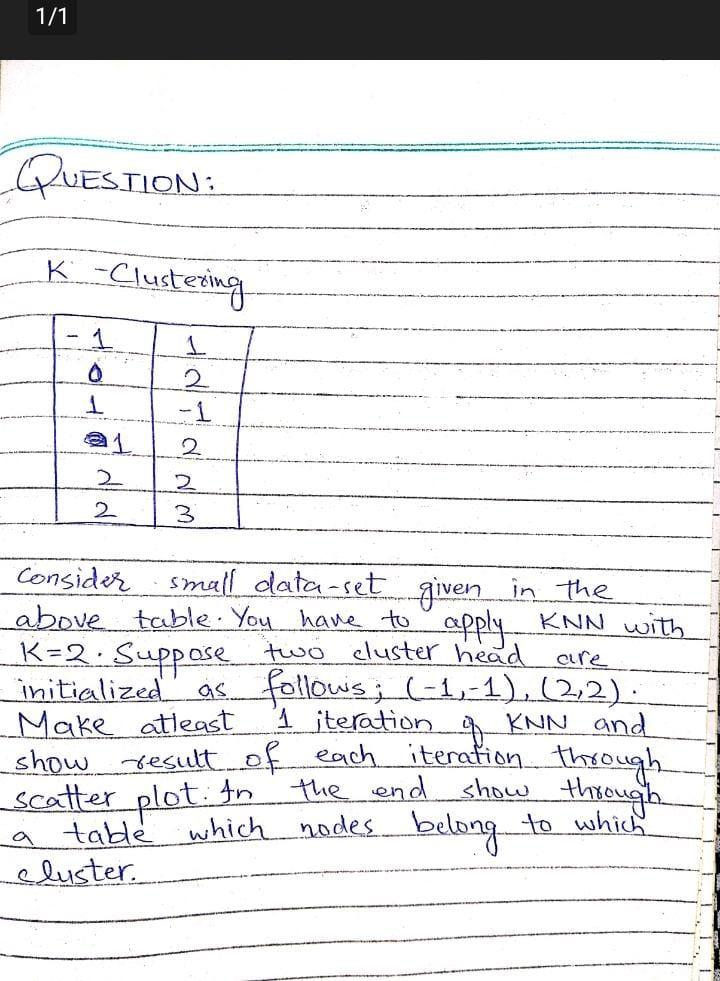 1/1
QUESTION:
K -Clustering
-1 1
0 2
1 -1
1 2
2 2
2 3
Consider small data-set given in the
above table. You have to apply KNN with
K=2. Suppose two cluster head are
initialized as follows; (-1,-1), (2,2).
Make atleast 1 iteration of KNN and
show result of each iteration through
scatter plot. In the end show through
a table which nodes belong to which
cluster.